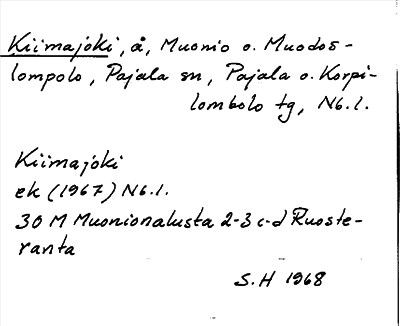 Kiimajoki, å, Muonio o. Muodos-
lompolo, Pajala sn, Pajala o. Korpi-
lombolo tg, Nb.l.
Kiimajoki
ek (1967) Nb.l.
30 M Muonionalusta 2-3 c-d Ruoste-
ranta
S.H 1968